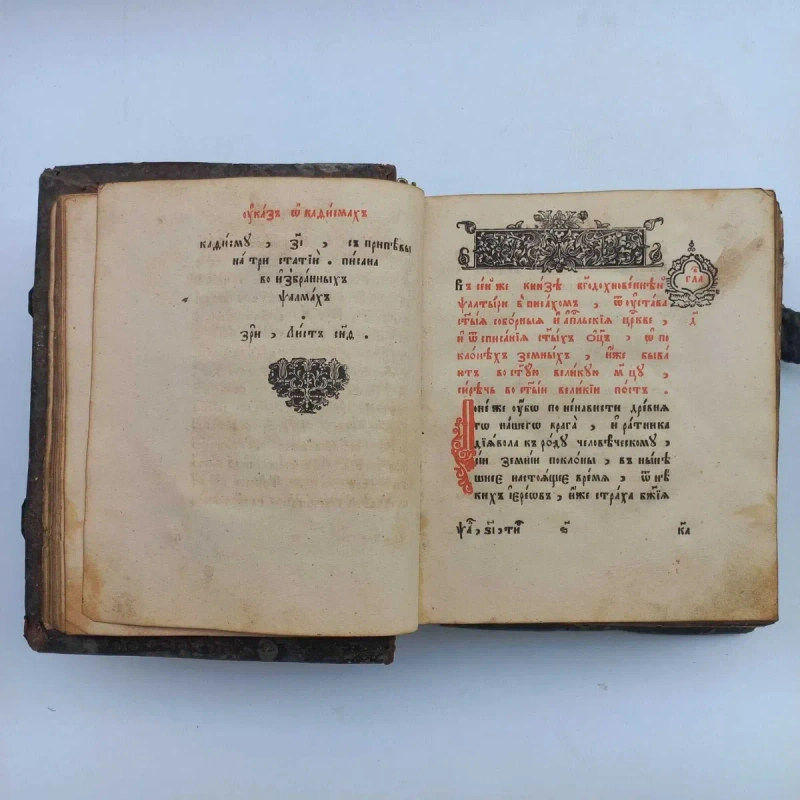 оу҆ка́зъ ѿ каѳи́смахъ
каѳи́смꙋ , з҃і , съ припѣ́вы
на три статі́и . писана
во и҆збра́нныхъ
ѱалмѣ́хъ
зрѝ , ли́стъ сн҃д .
Въ се́й же кни́зѣ бг҃одохнове́ннѣй
ѱалты́ри впи́сахомъ , ѿ оу҆ста́ва
ст҃ы́ѧ собо́рныѧ и҆ а҆пⷭ҇льскіѧ цр҃кве ,
и҆ ѿ списа́ніѧ ст҃ы́хъ ѻ҆ц҃ъ , ѡ҆ по
кло́нѣхъ земны́хъ , и҆̀же быва́
ютъ во ст҃ꙋ́ю вели́кꙋю м҃цꙋ ,
си́рѣчь во ст҃ы́и вели́кіи по́стъ .
гла
д҃
Поне́же оу҆́бѡ по ненави́сти дре́внѧ
гѡ на́шегѡ врага̀ , и҆ ра́тника
дїѧ́вола къ ро́дꙋ человѣ́ческомꙋ ,
сі́и зе́мніи покло́ны , въ ны́нѣ
шнее настоѧ́щее вре́мѧ , ѿ нѣ́
кихъ і҆ере́ѡвъ , и҆̀же стра́ха бж҃іѧ
ка